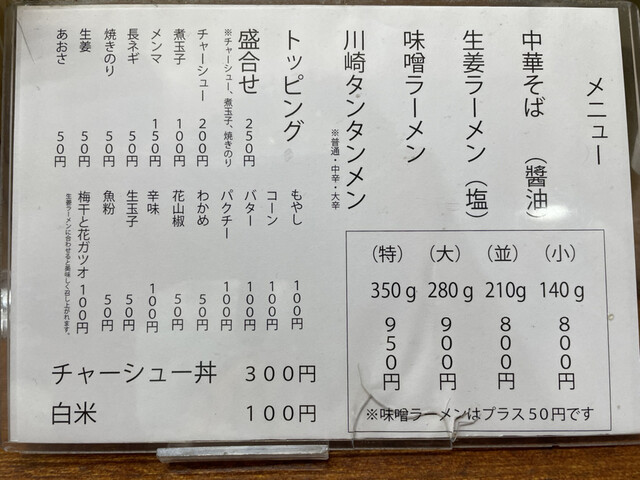 メニュー
中華そば （醤油）
生姜ラーメン（塩）
味噌ラーメン
川崎タンタンメン
※普通・中辛・大辛
（小） 140g 800円
（並） 210g 800円
（大） 280g 900円
（特） 350g 950円
※味噌ラーメンはプラス50円です
トッピング
盛合せ 250円
※チャーシュー、煮玉子、焼きのり
チャーシュー 200円
煮玉子 100円
メンマ 150円
長ネギ 50円
焼きのり 50円
生姜 50円
あおさ 50円
もやし 100円
コーン 100円
バター 100円
パクチー 100円
わかめ 50円
花山椒 50円
辛味 100円
生玉子 50円
魚粉 50円
梅干と花ガツオ 100円
生姜ラーメンに合わせると美味しく召し上がれます。
チャーシュー丼 300円
白米 100円